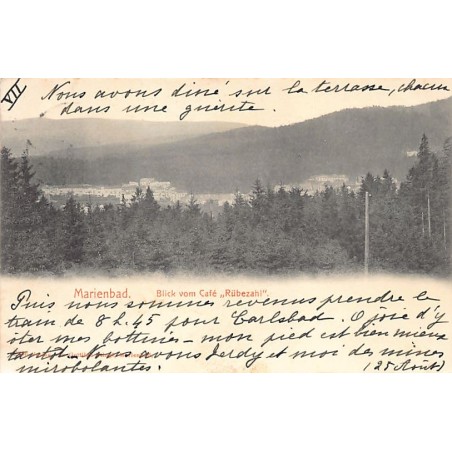 VII
Nous avons diné sur la terrasse, chacun
dans une guérite.
Marienbad. Blick vom Café „Rübezahl".
Puis nous sommes revenus prendre le
train de 8 h. 45 pour Carlsbad. O joie d'y
ôter mes bottines — mon pied est bien mieux
tantot. Nous avons Jerdy et moi des mines
mirobolantes. (25 Août)